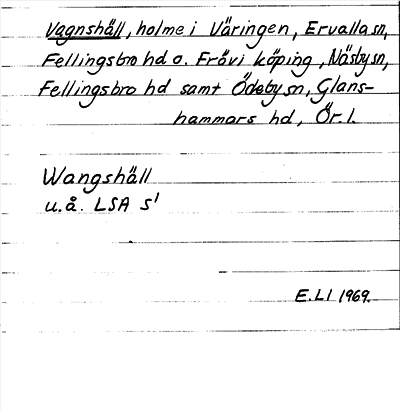 Vagnshäll, holme i Väringen, Ervalla sn,
Fellingsbro hd o. Frövi köping, Näsby sn,
Fellingsbro hd samt Ödeby sn, Glans-
hammars hd, Ör. l.
Wangshäll
u.å. LSA S1
E.LI 1969.